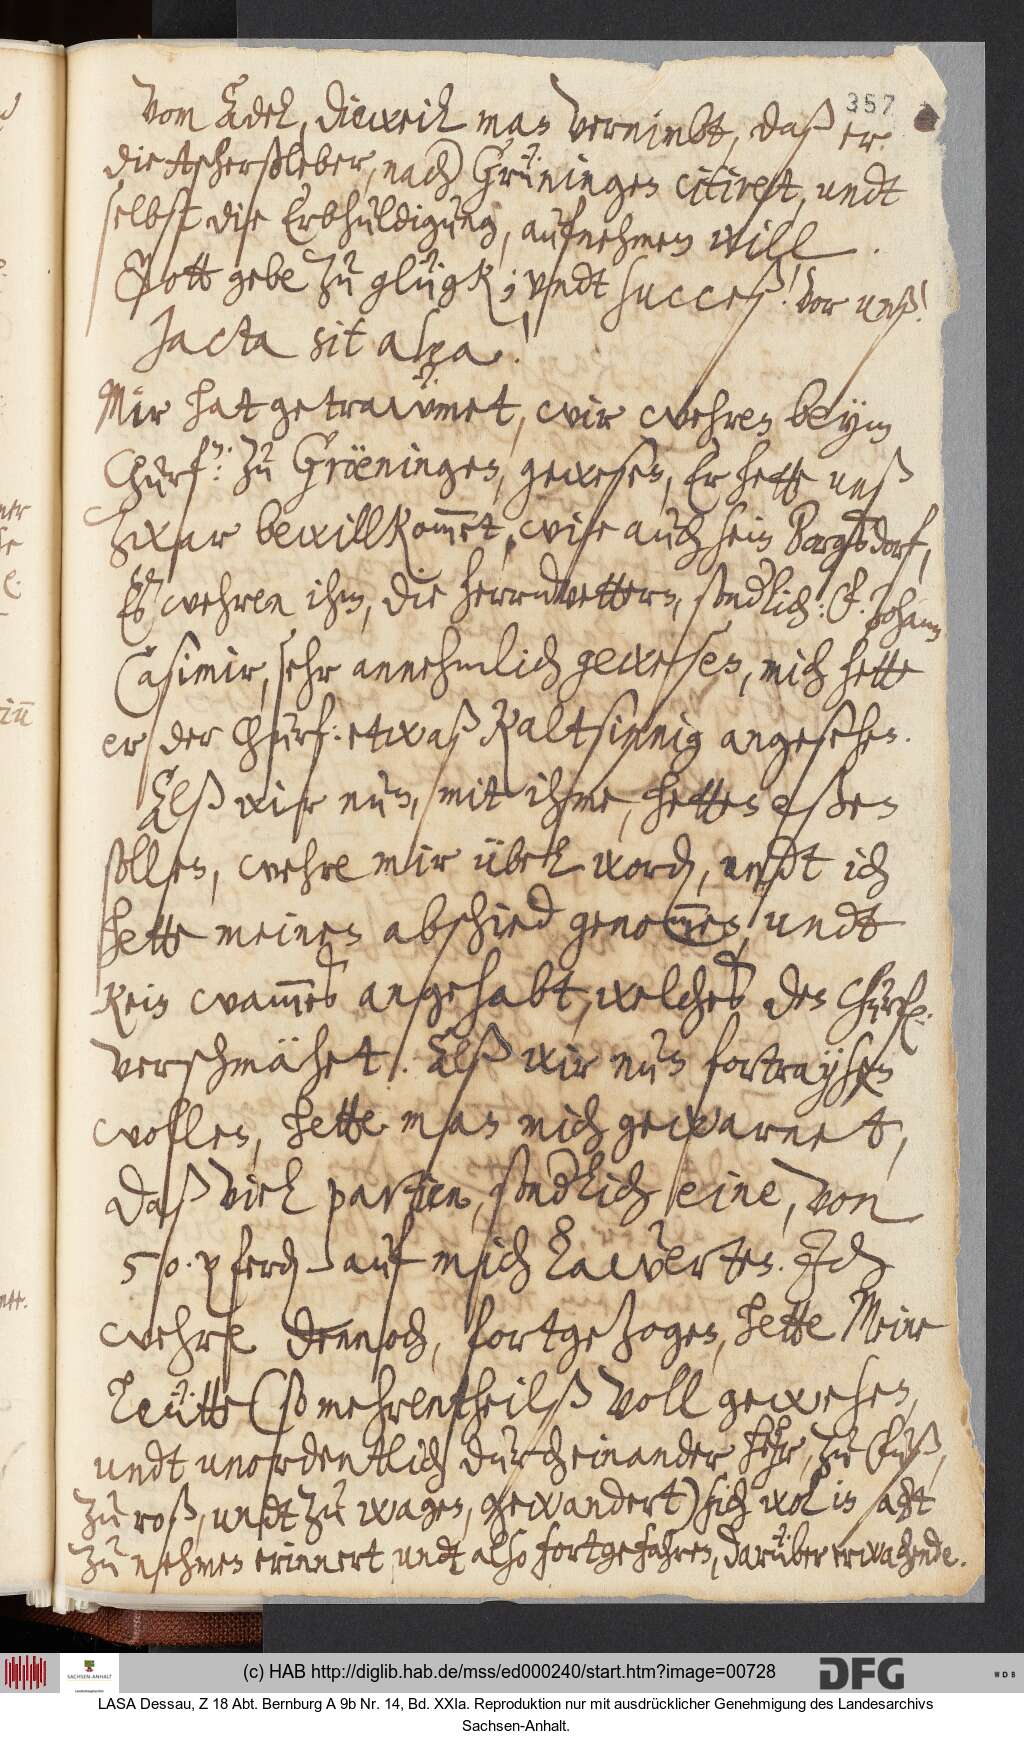 357
Vom Adel, dieweil man vernimbt, daß er
die Ascherßleber, nach Grüningen citiret, undt
selbst die Erbhuldigung, aufnehmen will.
Gott gebe zu glügk; undt succeß! vor unß!
Jacta sit alea!
Mir hat getrawmet, wir wehren beym
Churf: zu Gröeningen, gewesen, Er hette unß
zwar bewillkom̅et, wie auch sein Borgstorf,
Es wehren ihm, die herrnvettern, sondlich: F. Johann
Casimir, sehr annehmlich gewesen, mich hette
er der Churf: etwaß kaltsinnig angesehen.
Alß wir nun, mit ihme, hetten eßen
sollen, wehre mir übel word, undt ich
hette meinen abschied genom̅en, undt
kein wam̅es angehabt, welches den Churf:
verschmähet. Alß wir nun fortraysen
wollen, hette man mich gewarnet,
daß viel partien, sondlich eine, von
50. pferd auf mich lawerten. Ich
wehre dennoch, fortgezogen, hette Meine
Leütte (so mehrentheilß voll gewesen,
undt unordentlich durcheinander her, zu fuß,
zu roß, undt zu wagen, gewandert) sich wol in acht
zu nehmen erinnert, undt also fortgefahren, darüber erwachende.
(c) HAB http://diglib.hab.de/mss/ed000240/start.htm?image=00728
SACHSEN-ANHALT
DFG
WDB
LASA Dessau, Z 18 Abt. Bernburg A 9b Nr. 14, Bd. XXIa. Reproduktion nur mit ausdrücklicher Genehmigung des Landesarchivs
Sachsen-Anhalt.